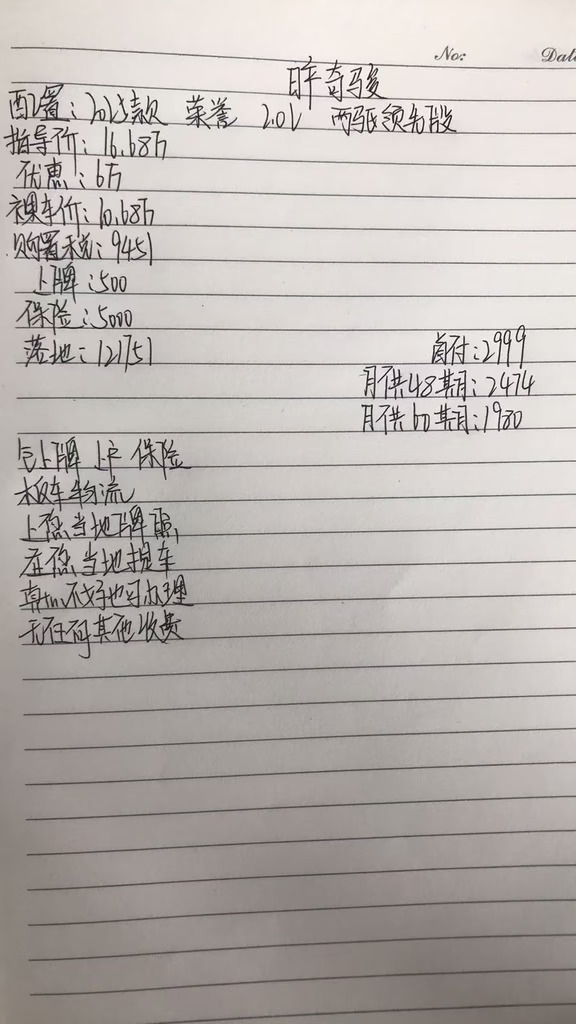 No:
Date
日产奇骏
配置:2023款 荣誉 2.0L 两驱领先版
指导价:16.68万
优惠:6万
裸车价:10.68万
购置税:9451
上牌:500
保险:5000
落地:121751
首付:2999
月供48期:2474
月供60期:1980
包上牌 上户 保险
板车物流
上您当地牌照
在您当地提车
真的不好也可办理
无任何其他收费